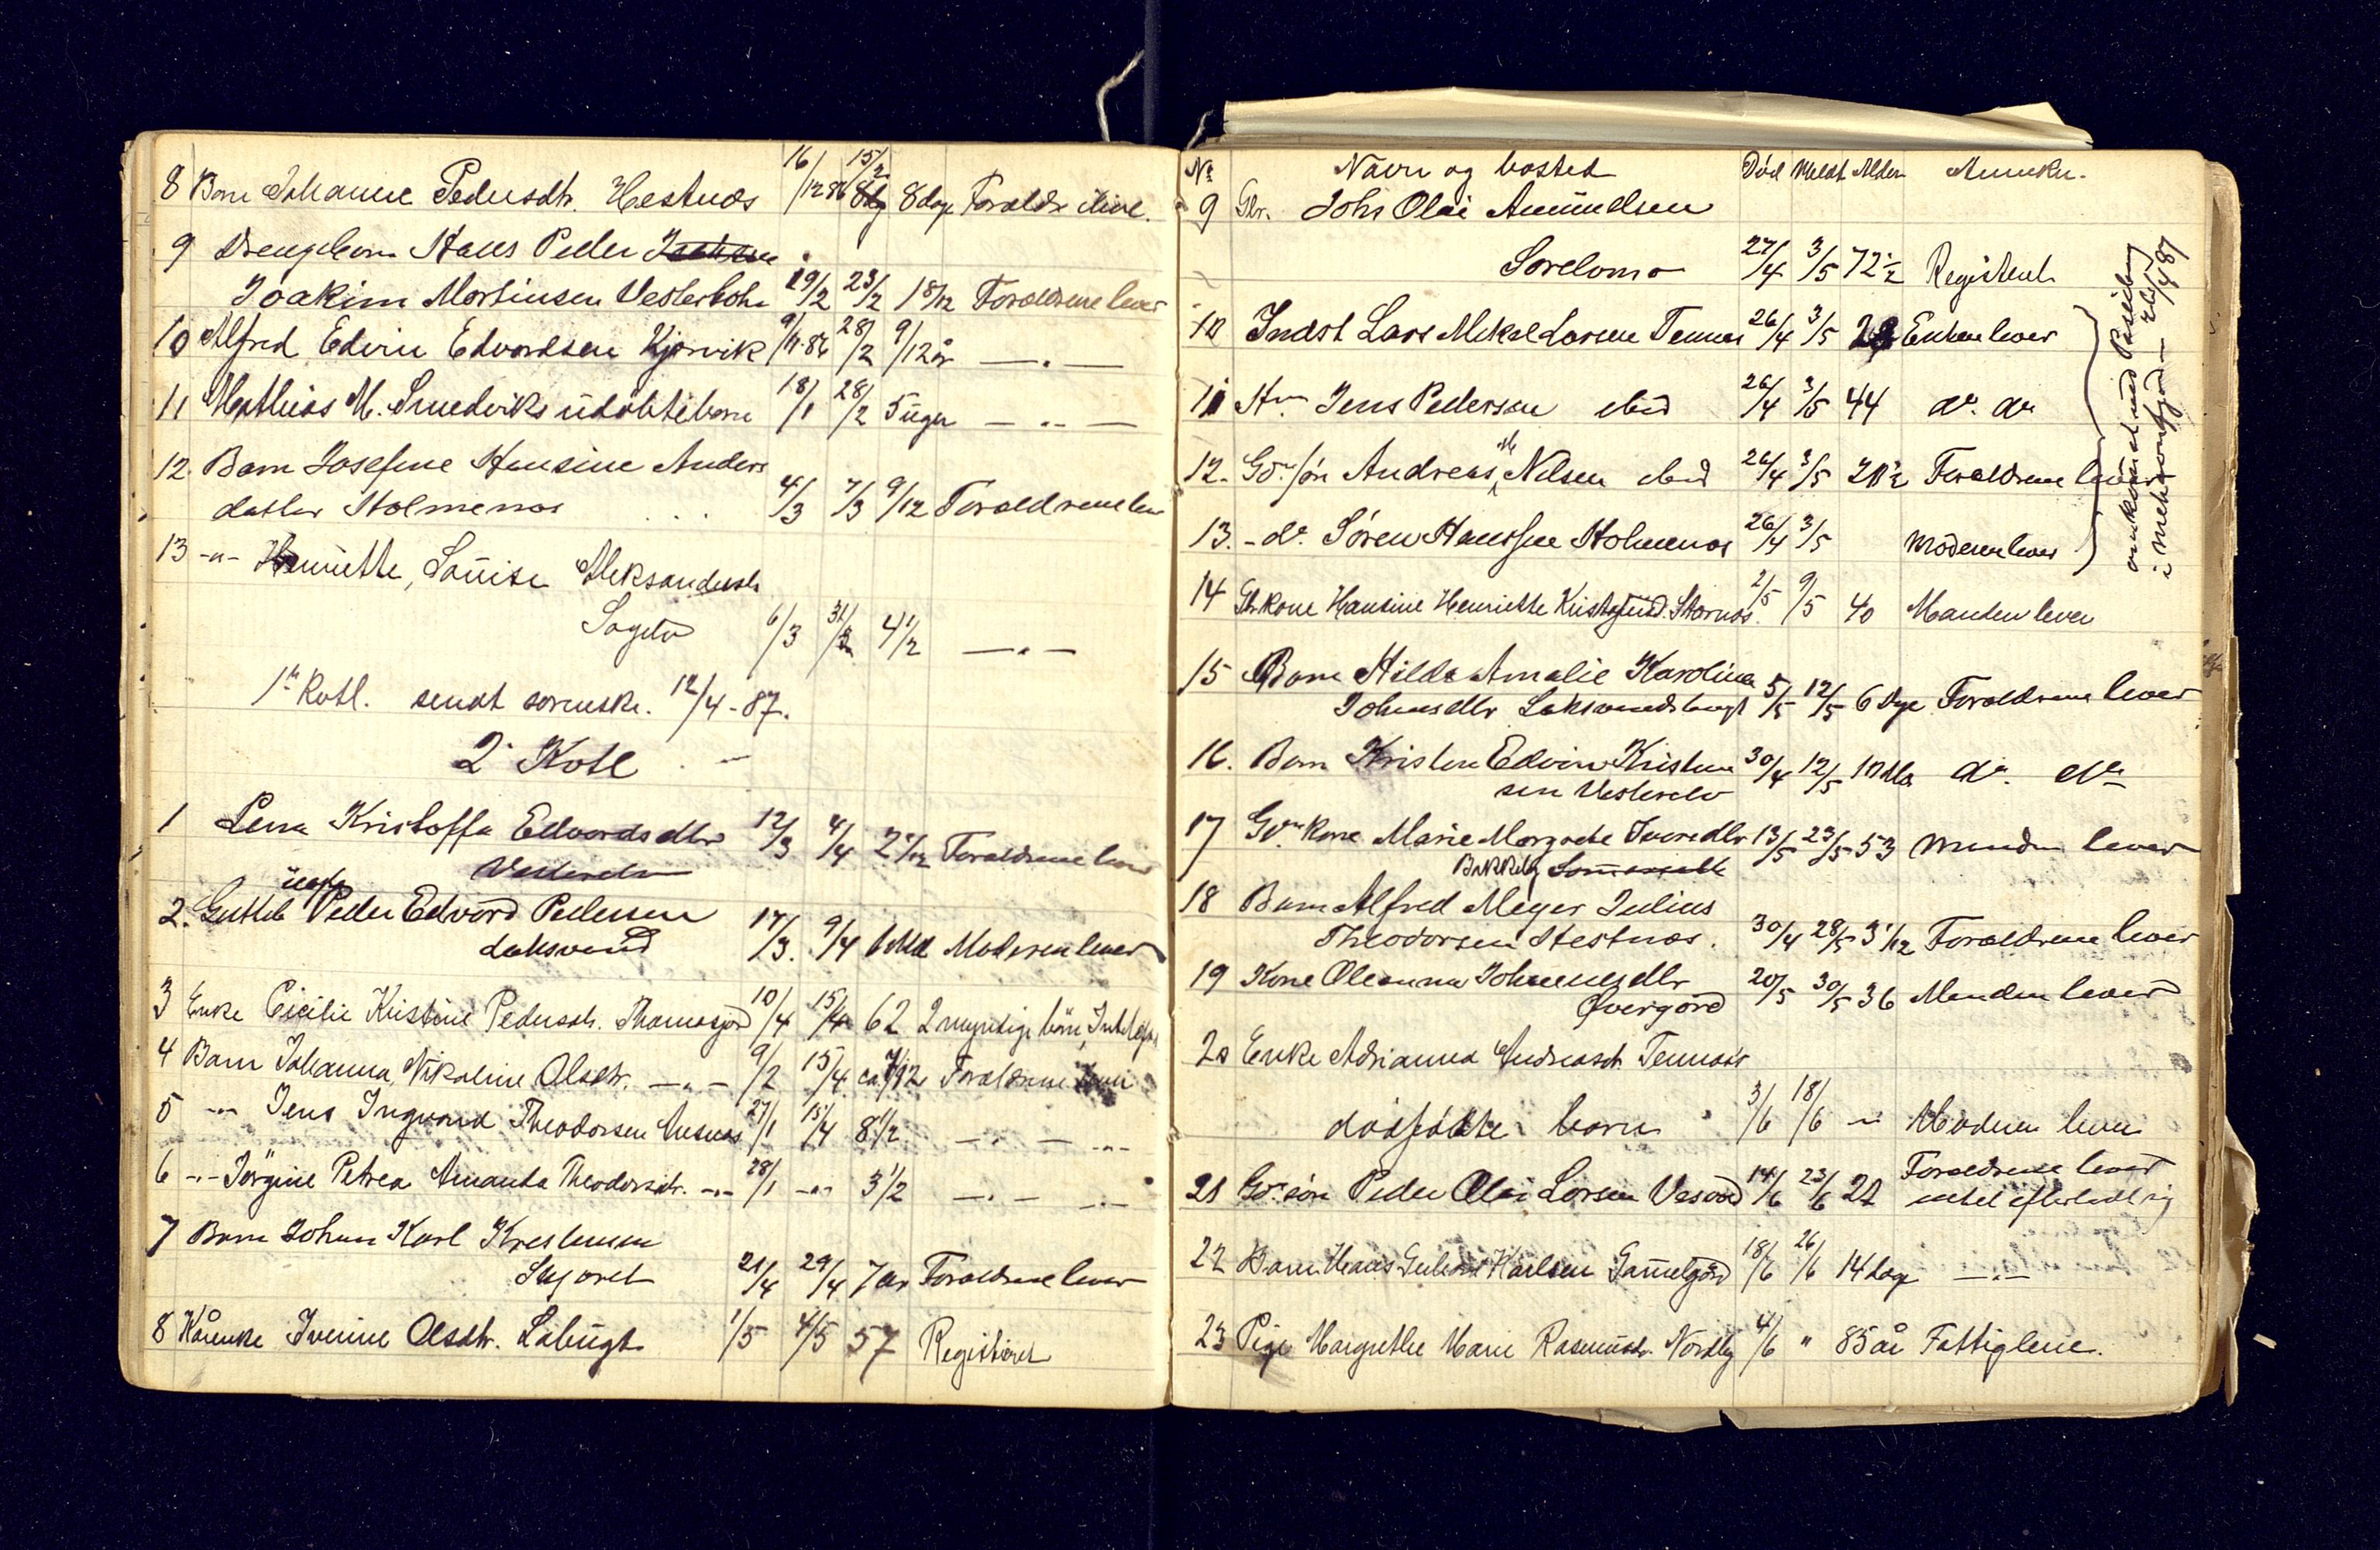 8 Barn Johanne Pedersdtr. Hestnæs 16/12 86 15/2 8 dage Forældr. leve.
9 Drengebarn Hans Peder
Joakim Martinsen Vesterbotn 19/2 23/2 1 8/12 Forældrene lever
10 Alfred Edvin Edvardsen Kjørvik 9/11.86 28/2 9/12 år — . —
11 Mathias M. Smedviks udøbte barn 18/1 28/2 5 uger — .. —
12. Barn Josefine Hansine Anders
datter Holmenæs 4/3 7/3 9/12 Forældrene lev
13 -"- Henriette, Louise Aleksandersdtr
6/3 31/3 4 1/2 — . —
1ste Kvtl. sendt sorenskr. 12/4 - 87.
2. Kvtl. —
1 Lena Kristoffa Edvardsdtr 12/3 4/4 2 2/12 Forældrene lever
Vesterelv
2. uægte
Gutteb Peder Edvard Pedersen
Laksvand 17/3. 9/4 6 Md Moderen lever
3 Enke Cicilie Kristine Pedersdtr. Thomasjord 10/4 15/4 62 2 myndige børn,
4 Barn Johanna, Nikoline Olsdtr. — " — 9/2 15/4 ca 7/12 Forældrene
5 -"- Jens Ingvard Theodorsen 27/1 15/4 8 1/2 — . — -"-
6 -"- Jörgine Petrea Amanda Theodorsdtr. -"- 28/1 -"- 3 1/2 — . — -"-
7 Barn Johan Karl Krestensen
21/4 29/4 7 år Forældrene lever
8 Kårenke Iverine Olsdtr. 1/5 4/5 57 Registreret
No Navn og bosted Död Meldt Alder Anmerkn.
9 Gbr. Johs Olai Amundsen
27/4 3/5 72 1/2 Registrert
10 Indst Lars Mikal Larsen Tennæs 26/4 3/5 Enken lever
11 Hm Jens Pedersen ibid 26/4 3/5 44 do. do
12. Gdm. søn Andreas M Nilsen ibid 26/4 3/5 20 1/2 Forældrene lever
13. - do. Sören Hanssen Holmenæs 26/4 3/5 Moderen lever
omkommet ved
i Mehavnfjord — 87
14 Gbr kone Hansine Henriette Kristofersd. Storнæs. 2/5 9/5 40 Manden lever
15 Barn Hilda Amalie Karolina
Johansdtr Laksvandsbugt 5/5 12/5 6 Dge Forældrene lever
16. Barn Kristen Edvin Kristen
sen Vesterelv 30/4 12/5 10 Md do. do
17 Gdm. Kone Marie Margrete Iversdtr 13/5 23/5 53 Manden lever
Bakkeby
18 Barn Alfred Meyer Julius
Theodorsen Hestnæs. 30/4 28/5 3 1/12 Forældrene lever
19 Kone Oleanna Johannesdtr
Øvergård 20/5 30/5 36 Manden lever
20 Enke Adrianna Andreasdt. Tennæs
dødfødte barn 3/6 18/6 -"- Moderen lever
21 Gdm. søn Peder Olai Larsen 14/6 23/6 22 Forældrene lever
intet efterladt sig
22 Barn Hans Karlsen Gammelgård 18/6 26/6 14 dage — . —
23 Pige Margrethe Marie Rasmusdtr. Nordby 4/6 " 85 år Fattiglem.